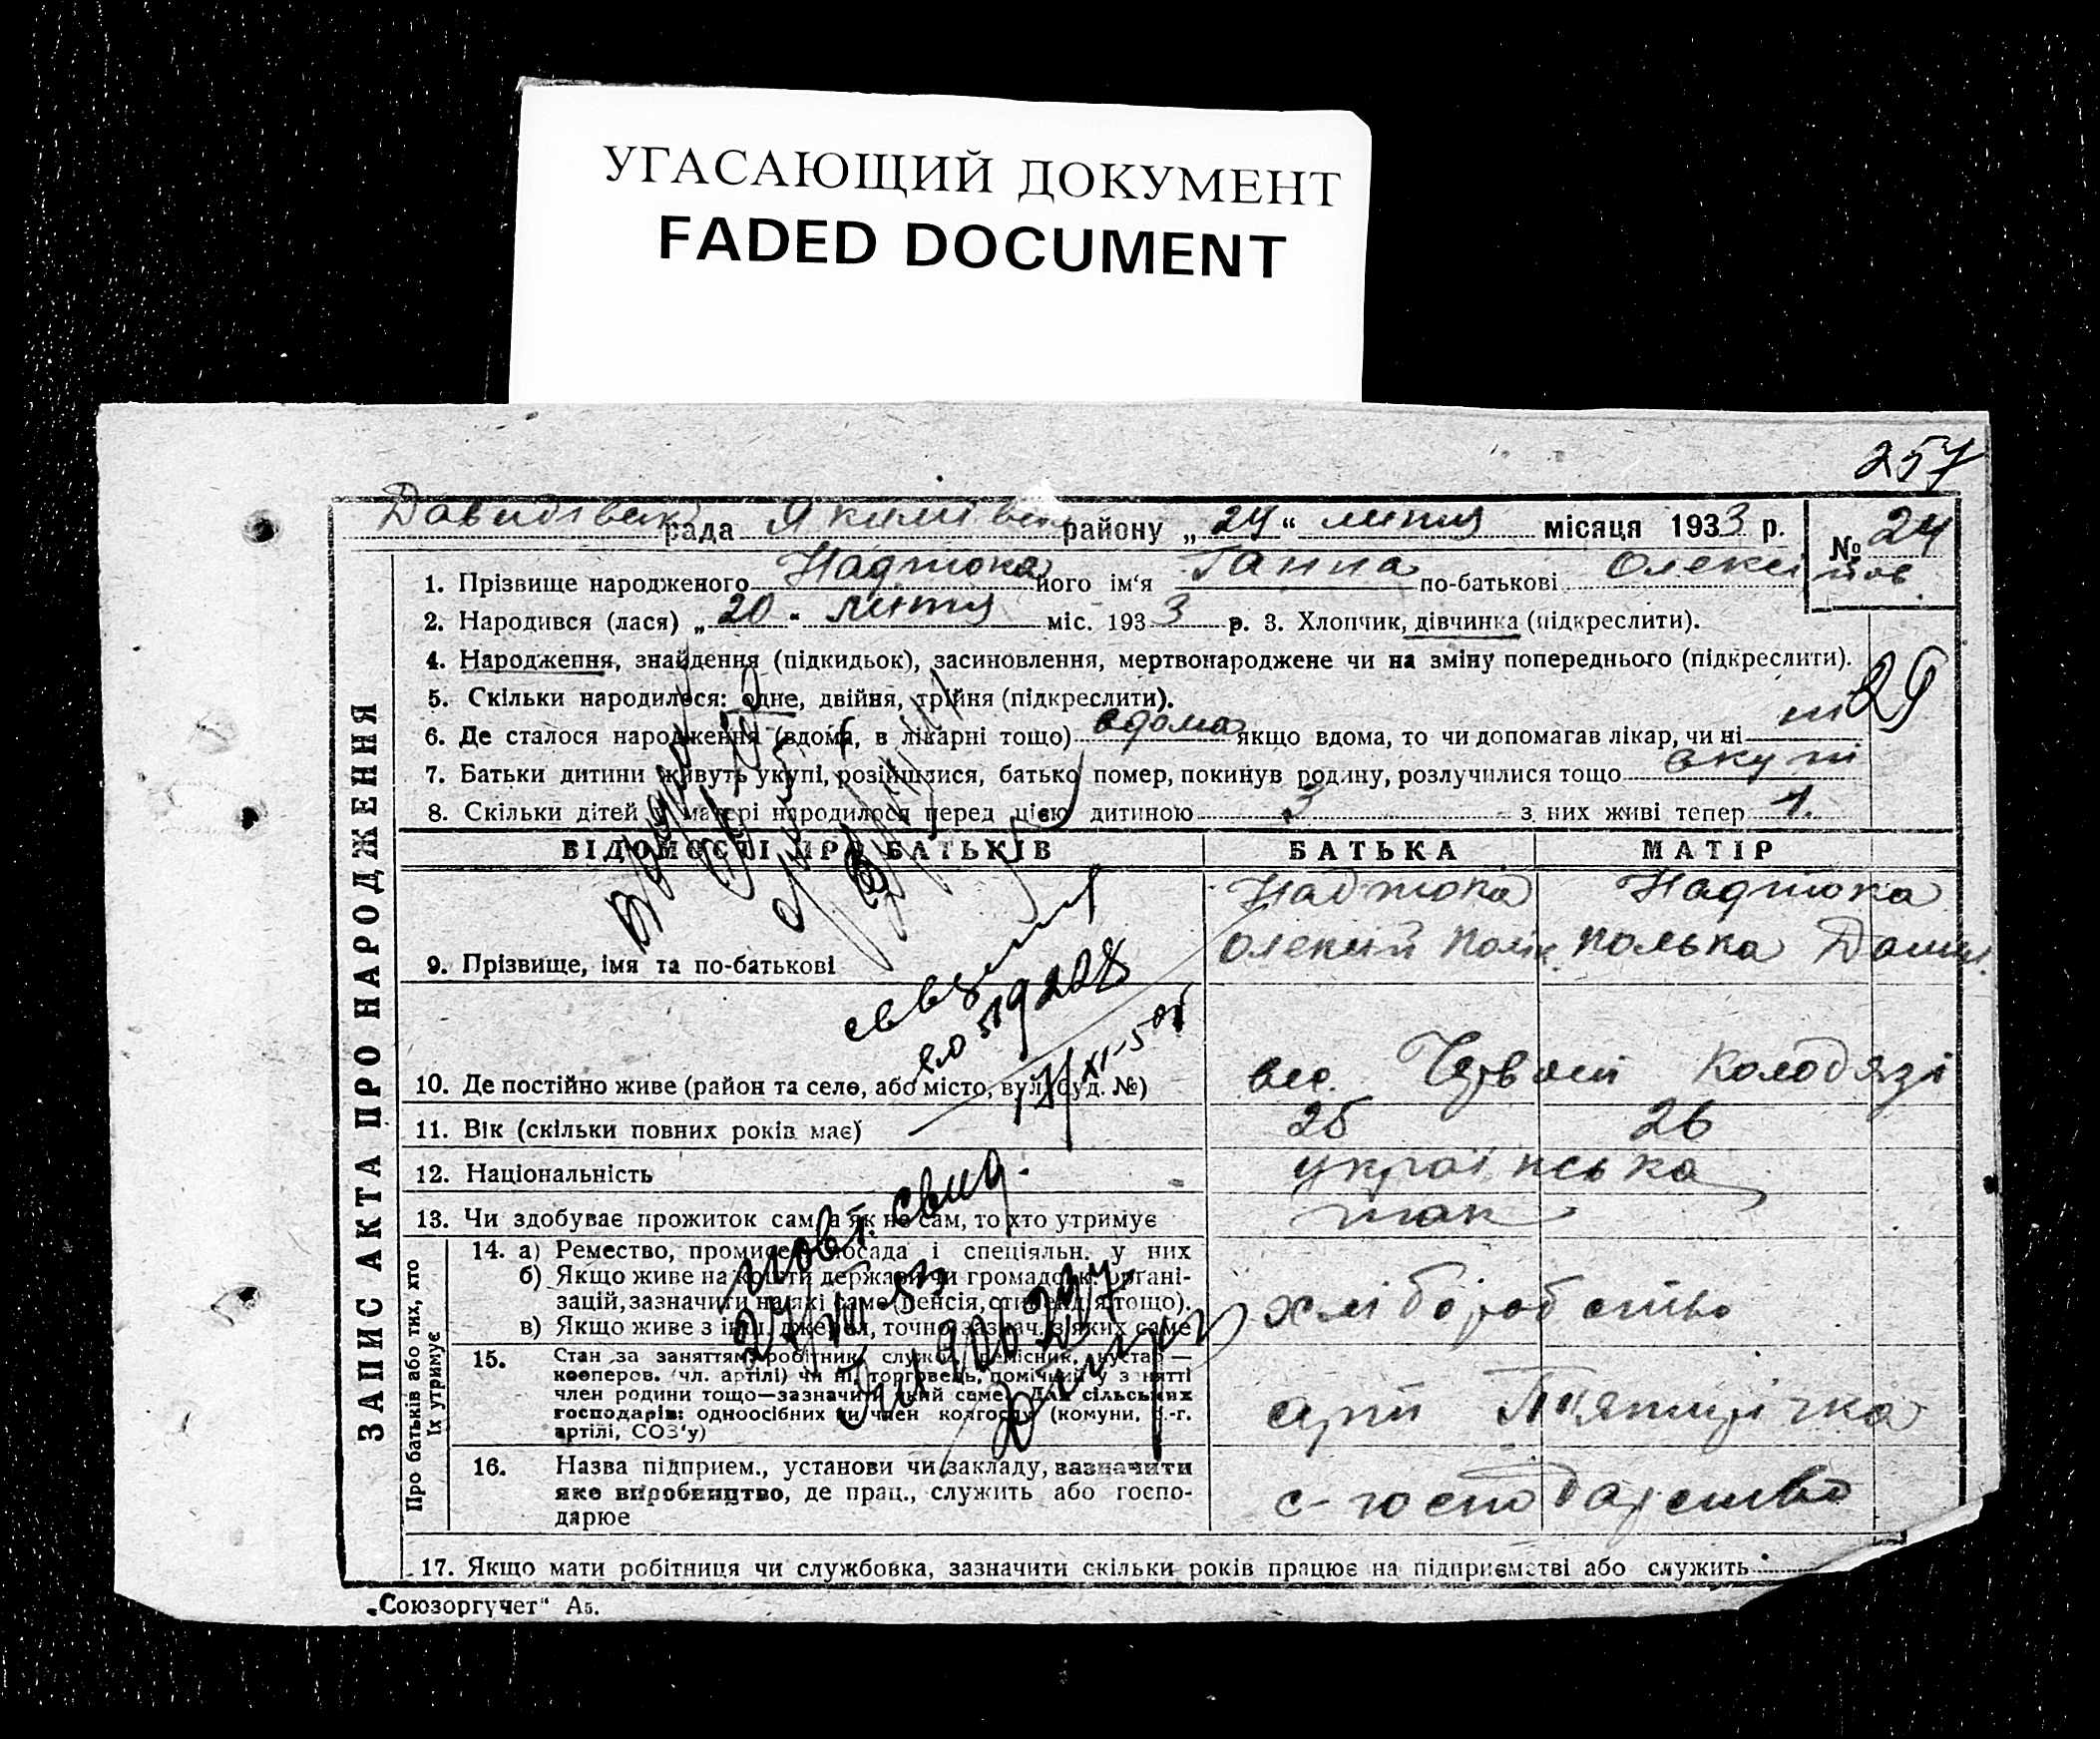 УГАСАЮЩИЙ ДОКУМЕНТ
FADED DOCUMENT
257
Давидівськ рада Якимівськ району „24“ лютия місяця 1933 р. № 24
1. Прізвище народженого Надтока його ім‘я Ганна по-батькові Олексіївов
2. Народився (лася) „20“ лютия міс. 1933 р. 3. Хлопчик, дівчинка (підкреслити).
4. Народження, знайдення (підкидьок), засиновлення, мертвонароджене чи на зміну попереднього (підкреслити).
29
5. Скільки народилося: одне, двійня, трійня (підкреслити).
6. Де сталося народження (вдома, в лікарні тощо) вдома якщо вдома, то чи допомагав лікар, чи ні ні
7. Батьки дитини живуть укупі, розійшлися, батько помер, покинув родину, розлучилися тощо вкупі
8. Скільки дітей у матері народилося перед цією дитиною 3 з них живі тепер 1.
ВІДОМОСТІ ПРО БАТЬКІВ БАТЬКА МАТІР
Надтока Надтока
9. Прізвище, імя та по-батькові Олексій Полік. Полька Данил.
10. Де постійно живе (район та село, або місто, вул. буд. №) Колодязі
11. Вік (скільки повних років має) 25 26
12. Національність українська
13. Чи здобуває прожиток сам, а як не сам, то хто утримує так
14. а) Ремество, промисел, посада і спеціяльн. у них
б) Якщо живе на кошти держави чи громадськ. органі-
зацій, зазначити на які саме (пенсія, стипендія тощо).
в) Якщо живе з інш. джерел, точно зазнач. з яких саме
хліборобство
15. Стан за заняттям: робітник, службов. ремісник, кустар—
кооперов. (чл. артілі) чи ні, торговець, помічний у занятті
член родини тощо—зазначити який саме. Для сільських
господарів: одноосібних чи член колгоспу (комуни, с.-г.
артілі, СОЗ'у)
арт П'ятирічка
16. Назва підприем., установи чи закладу, зазначити
яке виробництво, де прац., служить або госпо-
дарює
с-господарство
17. Якщо мати робітниця чи службовка, зазначити скільки років працює на підприємстві або служить
„Союзоргучет“ А5.
ЗАПИС АКТА ПРО НАРОДЖЕННЯ
Про батьків або тих, хто
їх утримує
519228
XI-5
повт. свид.
27/VII 53